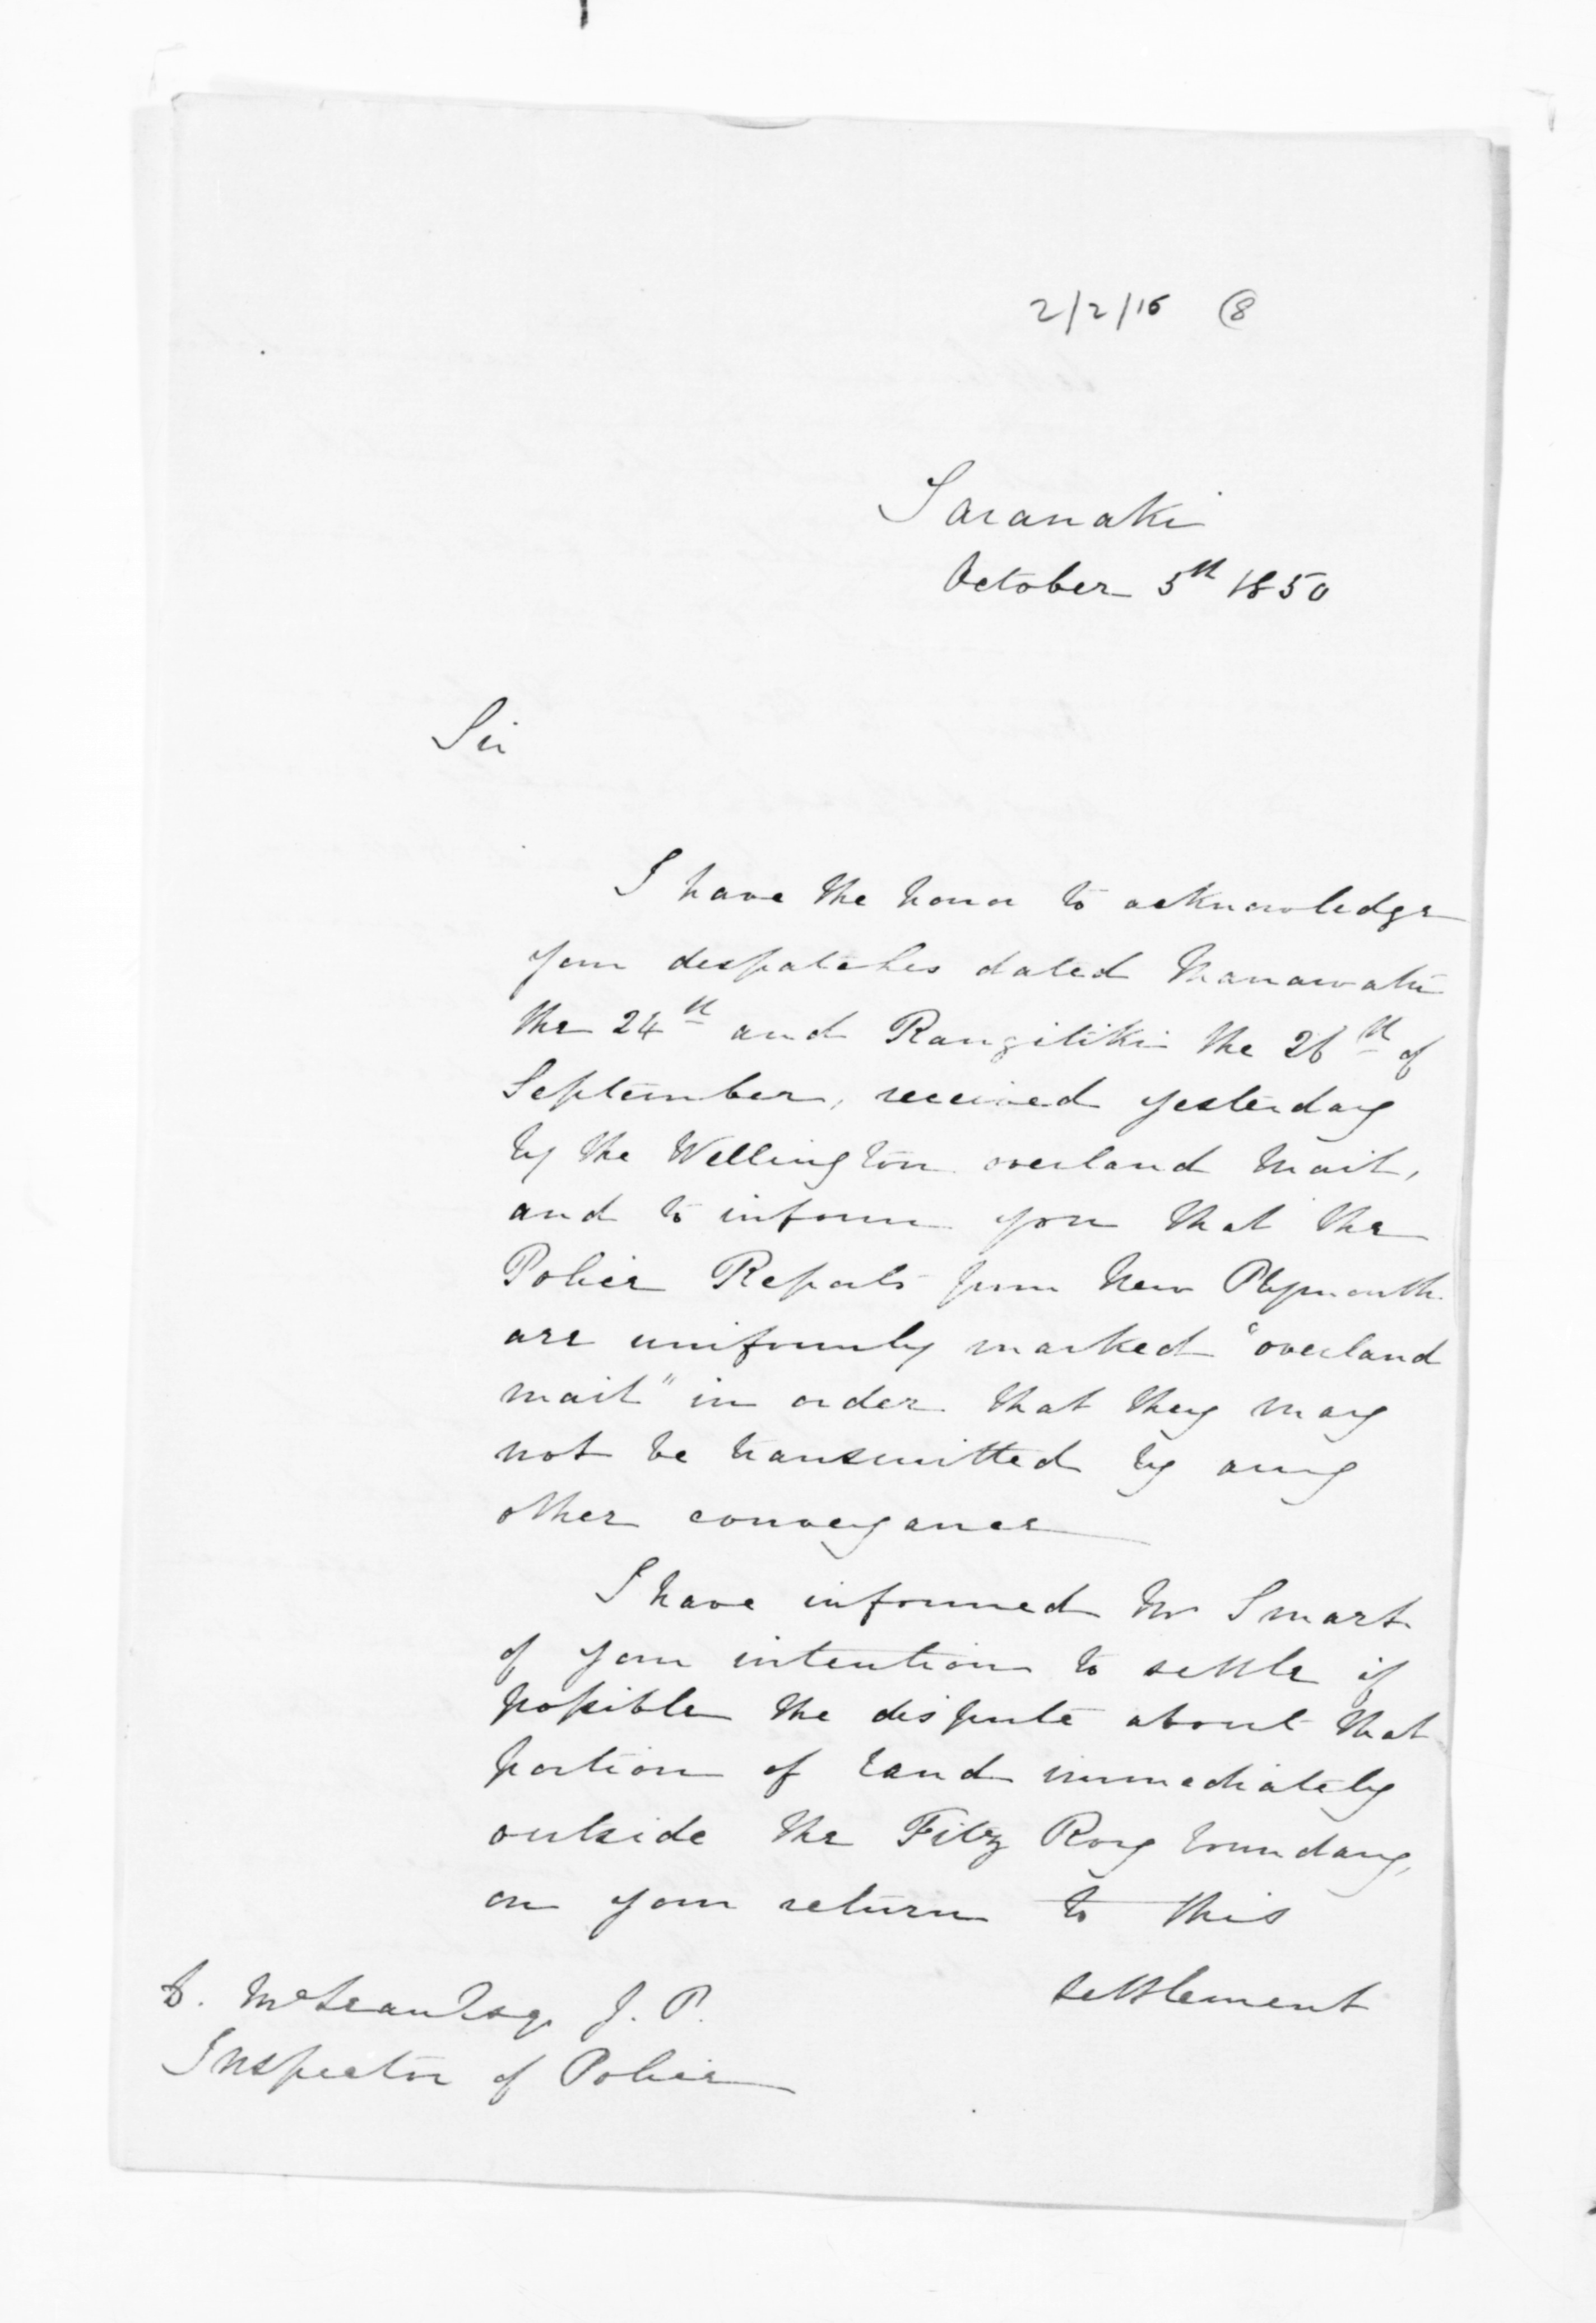 2/2/16 (8
Taranaki
October 5th 1850
Sir
I have the honor to acknowledge
your despatches dated Manawatu
the 24th and Rangitiki the 26th of
September, received yesterday
by the Wellington overland Mail,
and to inform you that the
Police Reports from New Plymouth
are uniformly marked "overland
mail" in order that they may
not be transmitted by any
other conveyance
I have informed Mr Smart
of your intention to settle if
possible the dispute about that
portion of land immediately
outside the Fitz Roy boundary,
on your return to this
settlement
D. McLean Esq. J. P.
Inspector of Police